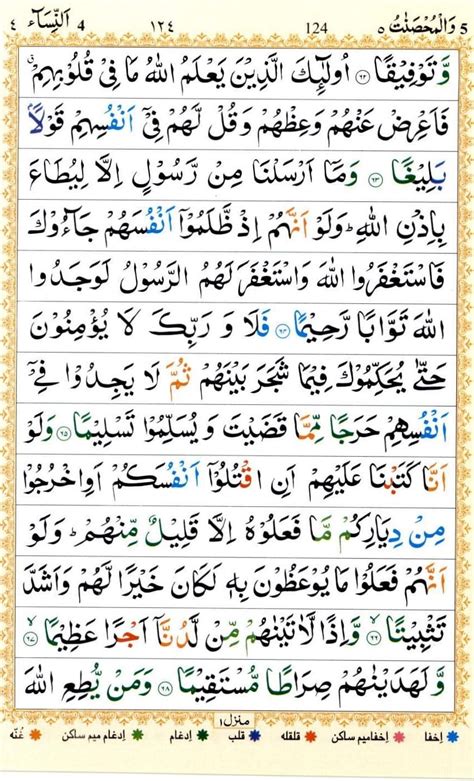 5 وَالْمُحْصَنٰتُ ٥ 124 ١٢٤ اَلنِّسَآء 4 ٤
وَّ تَوْفِيْقًا ۝٦٢ اُولٰٓئِكَ الَّذِيْنَ يَعْلَمُ اللّٰهُ مَا فِيْ قُلُوْبِهِمْ ۗ
فَاَعْرِضْ عَنْهُمْ وَعِظْهُمْ وَقُلْ لَّهُمْ فِيْٓ اَنْفُسِهِمْ قَوْلًاۢ
بَلِيْغًا ۝٦٣ وَمَآ اَرْسَلْنَا مِنْ رَّسُوْلٍ اِلَّا لِيُطَاعَ
بِاِذْنِ اللّٰهِ ؕ وَلَوْ اَنَّهُمْ اِذْ ظَّلَمُوْٓا اَنْفُسَهُمْ جَآءُوْكَ
فَاسْتَغْفَرُوا اللّٰهَ وَاسْتَغْفَرَ لَهُمُ الرَّسُوْلُ لَوَجَدُوا
اللّٰهَ تَوَّابًا رَّحِيْمًا ۝٦٤ فَلَا وَ رَبِّكَ لَا يُؤْمِنُوْنَ
حَتّٰى يُحَكِّمُوْكَ فِيْمَا شَجَرَ بَيْنَهُمْ ثُمَّ لَا يَجِدُوْا فِيْٓ
اَنْفُسِهِمْ حَرَجًا مِّمَّا قَضَيْتَ وَ يُسَلِّمُوْا تَسْلِيْمًا ۝٦٥ وَلَوْ
اَنَّا كَتَبْنَا عَلَيْهِمْ اَنِ اقْتُلُوْٓا اَنْفُسَكُمْ اَوِ اخْرُجُوْا
مِنْ دِيَارِكُمْ مَّا فَعَلُوْهُ اِلَّا قَلِيْلٌ مِّنْهُمْ ؕ وَلَوْ
اَنَّهُمْ فَعَلُوْا مَا يُوْعَظُوْنَ بِهٖ لَكَانَ خَيْرًا لَّهُمْ وَاَشَدَّ
تَثْبِيْتًا ۝٦٦ وَّاِذًا لَّاٰتَيْنٰهُمْ مِّنْ لَّدُنَّآ اَجْرًا عَظِيْمًا ۝٦٧
وَّ لَهَدَيْنٰهُمْ صِرَاطًا مُّسْتَقِيْمًا ۝٦٨ وَمَنْ يُّطِعِ اللّٰهَ
منزل ١
اِخفا اِخفامیم ساکن قلقله قلب اِدغام اِدغام میم ساکن غُنّه